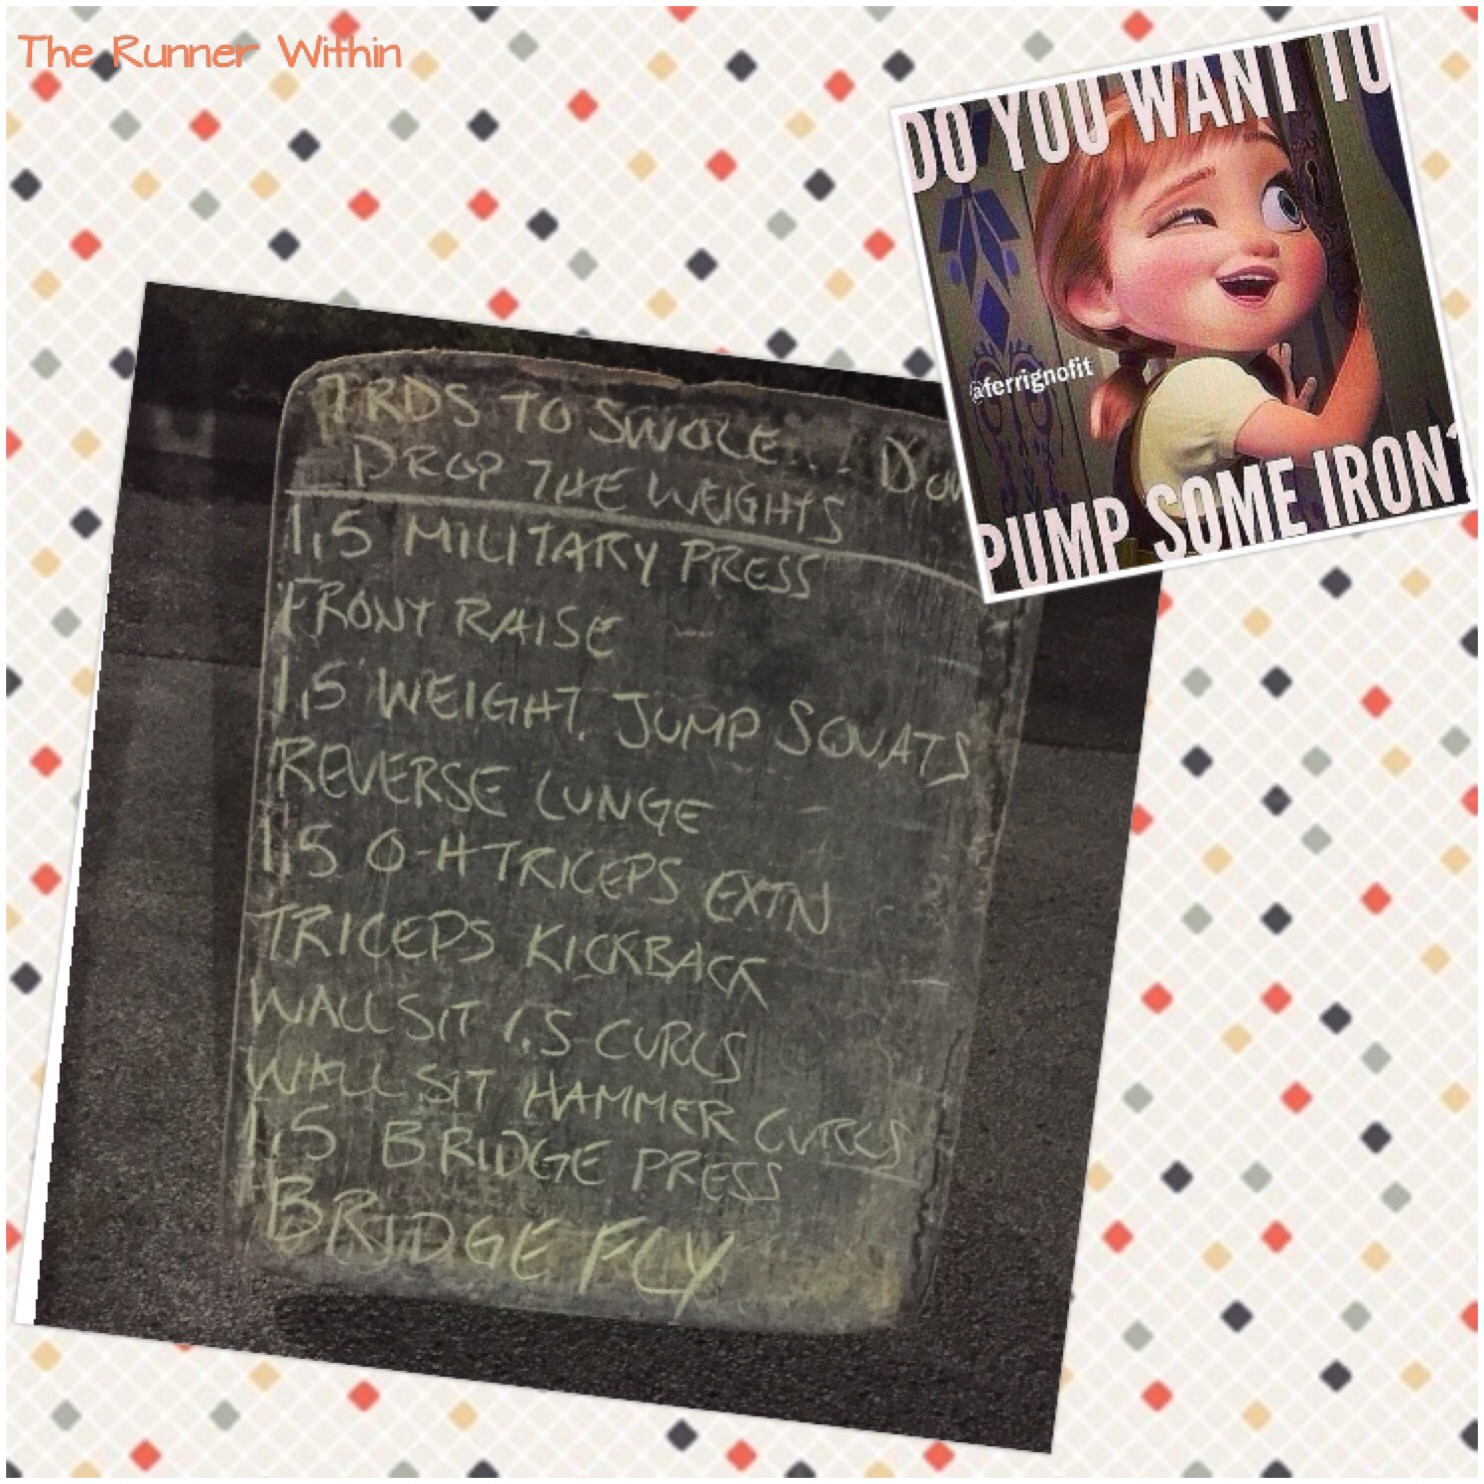 The Runner Within
DO YOU WANT TO
@aferrignofit
PUMP SOME IRON?
7RDS TO SWOLE...
DROP THE WEIGHTS
1,5 MILITARY PRESS
FRONT RAISE
1,5 WEIGHT. JUMP SQUATS
REVERSE LUNGE
1,5 O-H TRICEPS EXTN
TRICEPS KICKBACK
WALL SIT 1.5 CURLS
WALL SIT HAMMER CURLS
1,5 BRIDGE PRESS
BRIDGE FLY